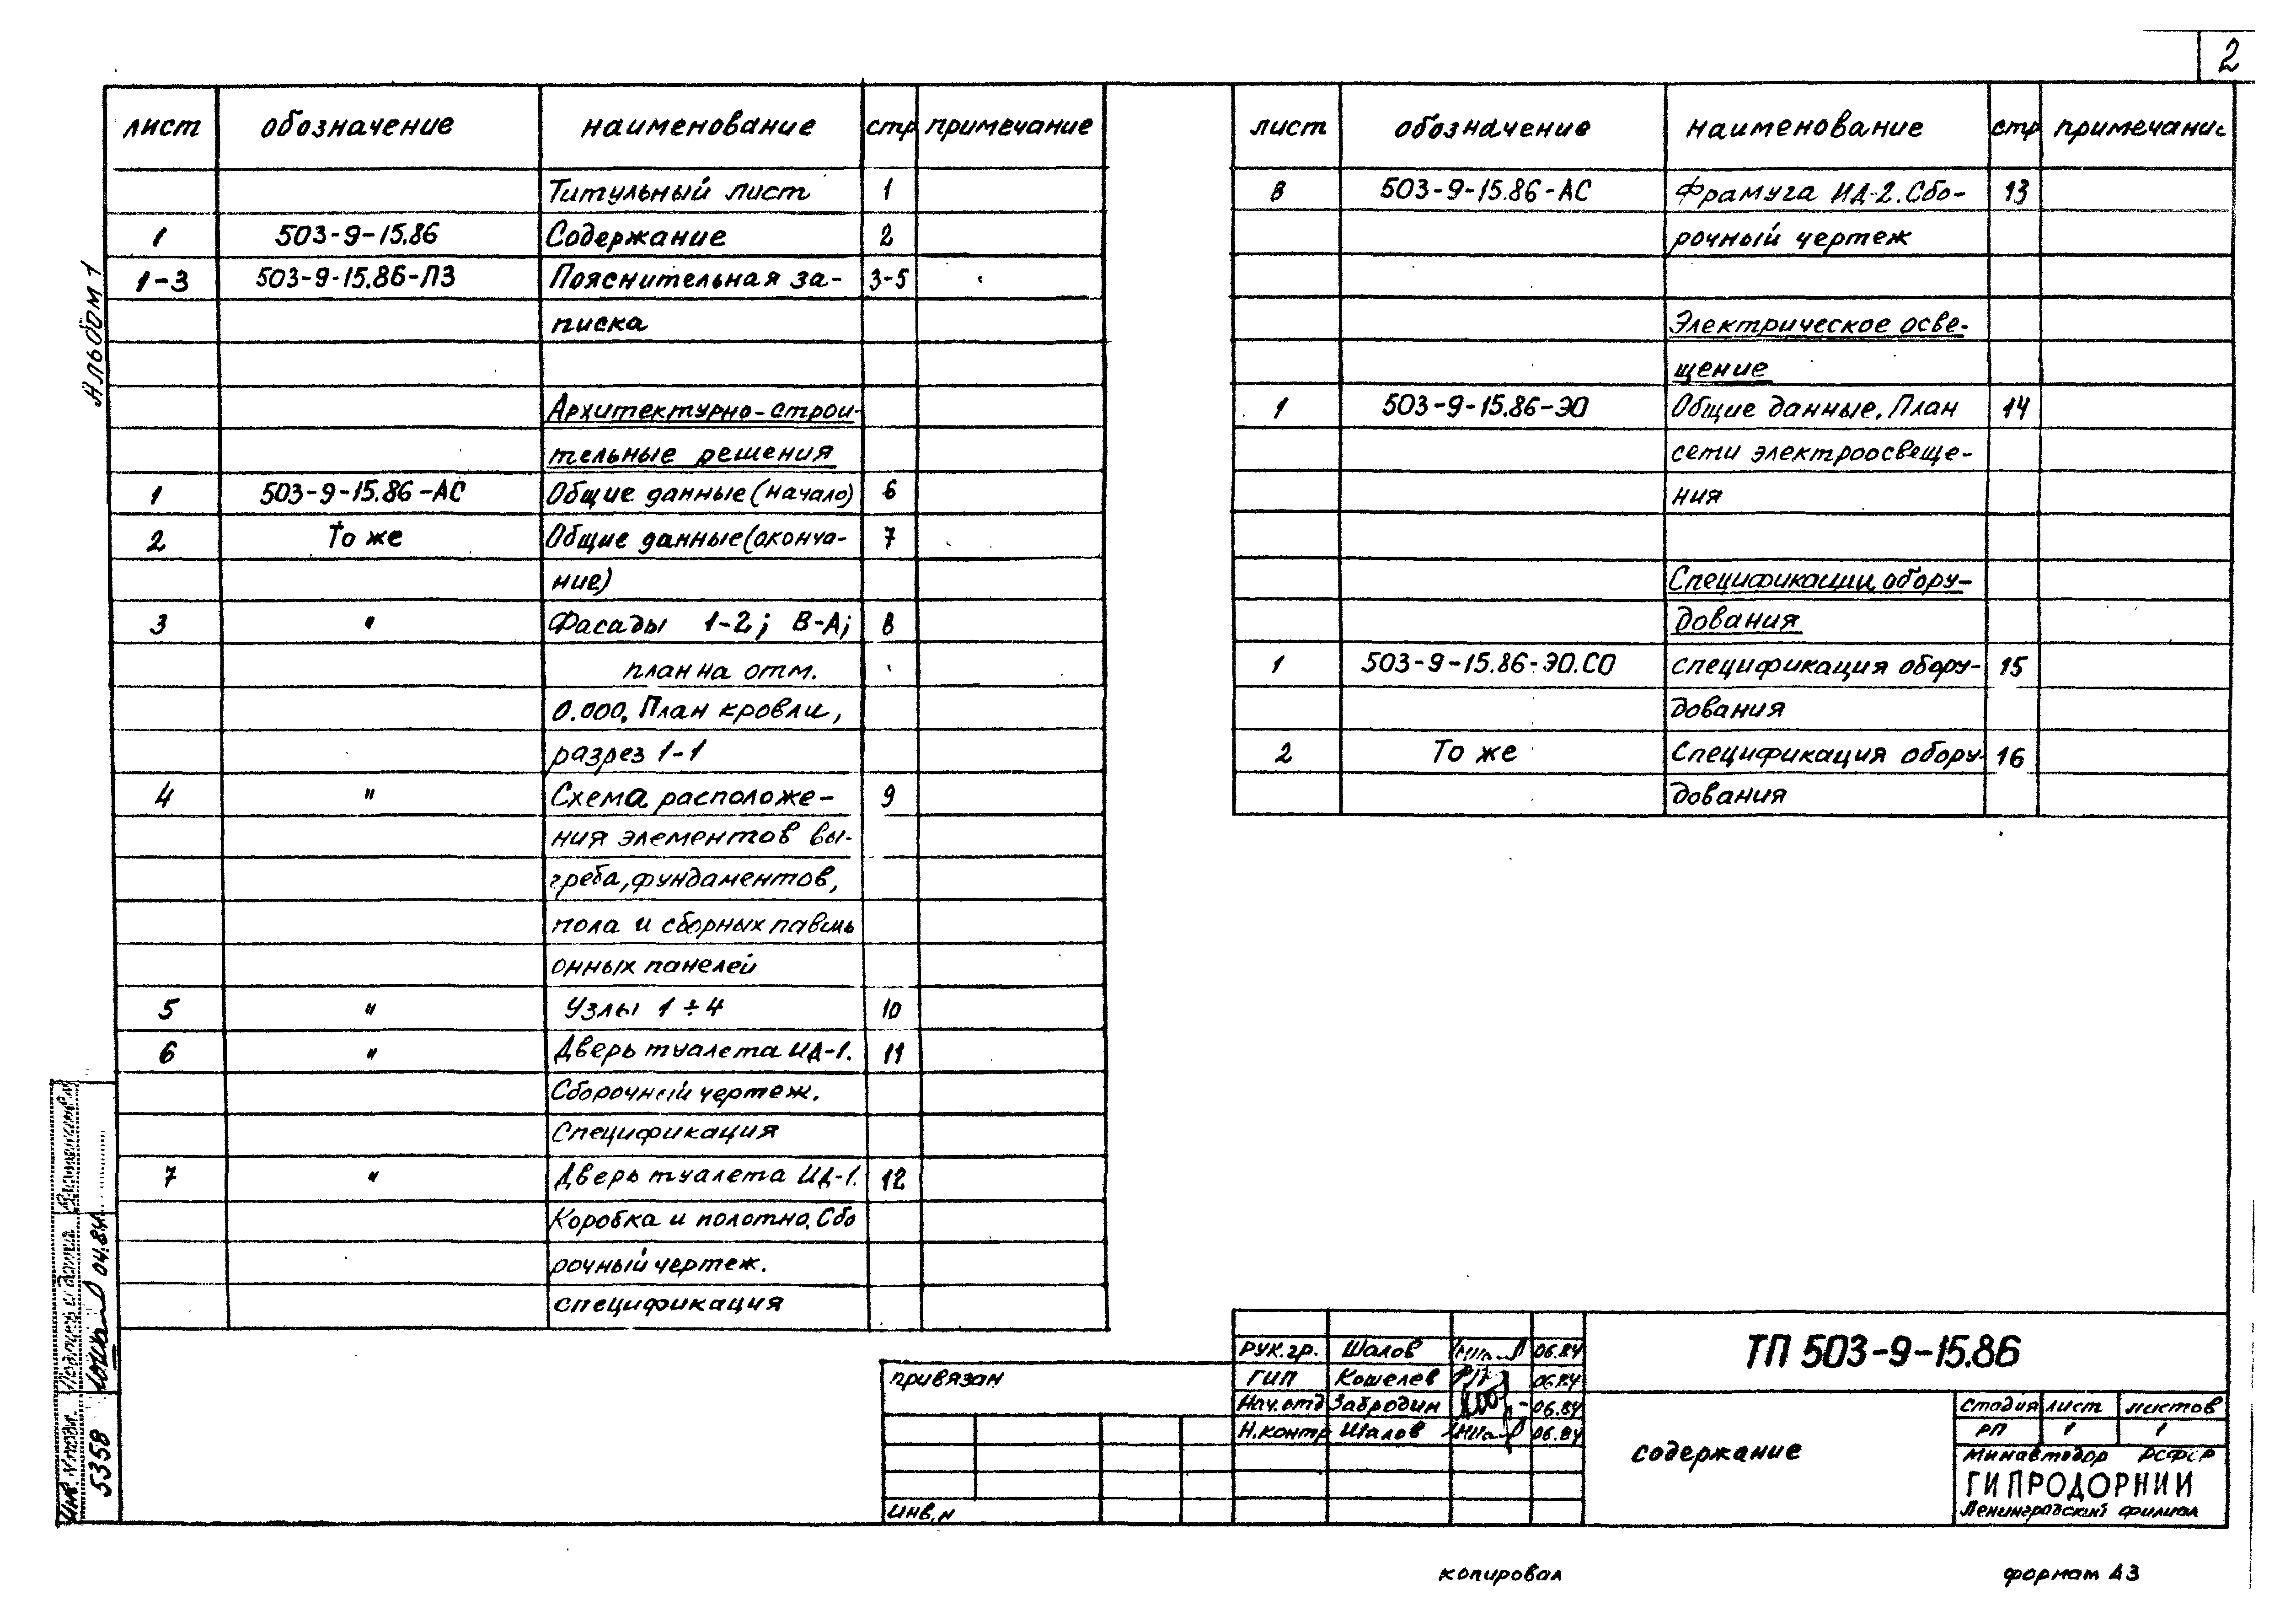 2
Альбом 1
лист обозначение наименование стр примечание
Титульный лист 1
1 503-9-15.86 Содержание 2
1-3 503-9-15.86-ПЗ Пояснительная за- 3-5
писка
Архитектурно-строи-
тельные решения
1 503-9-15.86-АС Общие данные (начало) 6
2 То же Общие данные (оконча- 7
ние)
3 " Фасады 1-2; В-А; 8
план на отм.
0.000. План кровли,
разрез 1-1
4 " Схема расположе- 9
ния элементов вы-
греба, фундаментов,
пола и сборных павиль
онных панелей
5 " Узлы 1÷4 10
6 " Дверь туалета ИД-1. 11
Сборочный чертеж.
Спецификация
7 " Дверь туалета ИД-1. 12
Коробка и полотно. Сбо
рочный чертеж.
спецификация
лист обозначение наименование стр примечание
8 503-9-15.86-АС Фрамуга ИД-2. Сбо- 13
рочный чертеж
Электрическое осве-
щение
1 503-9-15.86-ЭО Общие данные. План 14
сети электроосвеще-
ния
Спецификации обору-
дования
1 503-9-15.86-ЭО.СО спецификация обору- 15
дования
2 То же Спецификация обору- 16
дования
привязан
инв. №
Рук.гр. Шалов 06.84
ГИП Кошелев 06.84
Нач.отд Забродин 06.84
Н.контр Шалов 06.84
ТП 503-9-15.86
содержание
стадия лист листов
РП 1 1
Минавтодор РСФСР
ГИПРОДОРНИИ
Ленинградский филиал
Инв. № подл. Подпись и дата Взам. инв. №
5358 04.84
копировал
формат А3